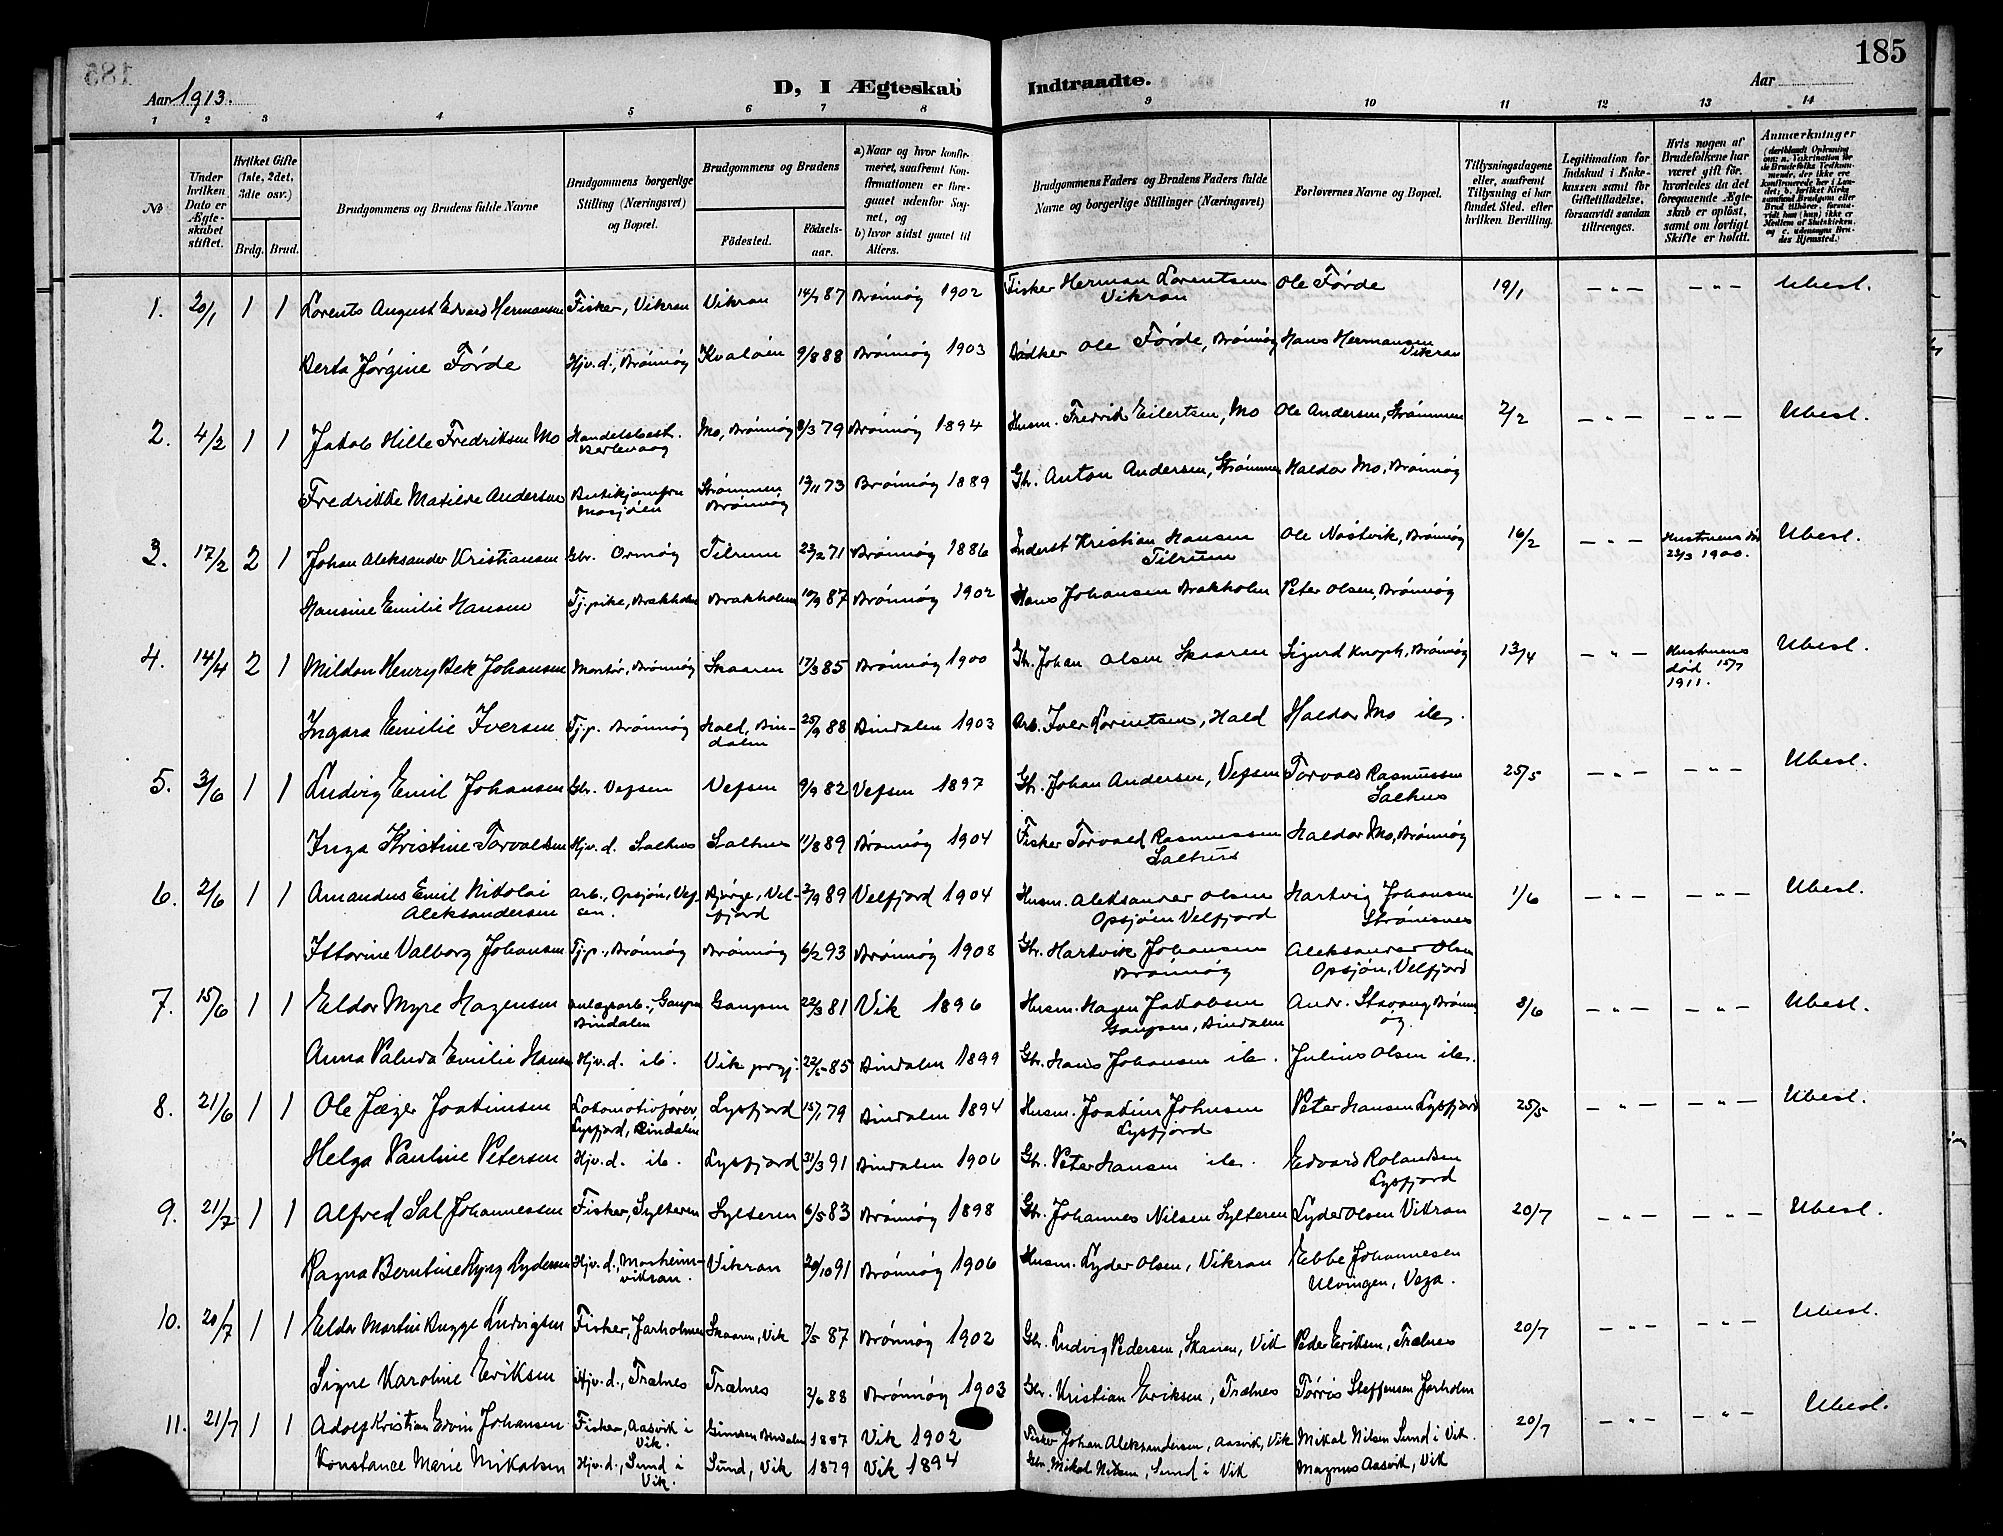 185
Aar 1913.
D, I Ægteskab Indtraadte.
Aar
1 2 3 4 5 6 7 8 9 10 11 12 13 14
№
Under hvilken Dato er Ægteskabet stiftet.
Hvilket Gifte (1ste, 2det, 3die osv.)
Brdg. Brud.
Brudgommens og Brudens fulde Navne
Brudgommens borgerlige Stilling (Næringsvei) og Bopæl.
Brudgommens og Brudens
Fødested.
Fødselsaar.
a) Naar og hvor konfirmeret, saafremt Konfirmationen er foregaaet udenfor Sognet, og
b) hvor sidst gaaet til Alters.
Brudgommens Faders og Brudens Faders fulde Navne og borgerlige Stillinger (Næringsvei)
Forlovernes Navne og Bopæl.
Tillysningsdagene eller, saafremt Tillysning ei har fundet Sted, efter hvilken Bevilling.
Legitimation for Indskud i Enkekassen samt for Giftetilladelse, forsaavidt saadan tiltrænges.
Hvis nogen af Brudefolkene har været gift før, hvorledes da det foregaaende Ægteskab er opløst, samt om lovligt Skifte er holdt.
Anmærkninger
1. 20/1 1 1 Lorents August Edvard Hermansen Fisker, Vikran Vikran 14/7 87 Brönnög 1902 Fisker Herman Lorentsen Vikran Ole Förde 19/1 – " – – " – Ubesl.
Berta Jørgine Förde Hjv.d., Brönnög Kvalöen 9/8 88 Brönnög 1903 Bödker Ole Förde, Brönnög Hans Hermansen Vikran
2. 4/2 1 1 Jakob Hille Fredriksen Mo Handelsbest. Berlevaag Mo, Brönnög 8/3 79 Brönnög 1894 Husm. Fredrik Eilertsen, Mo Ole Andersen, Strømmen 2/2 – " – – " – Ubesl.
Fredrikke Matilde Andersen Butikjomfru Mosjöen Strömmen Brönnög 13/11 73 Brönnög 1889 Gbr. Anton Andersen, Strömmen Haldor Mo, Brönnög
3. 17/2 2 1 Johan Aleksander Kristiansen Gbr. Ormög Tilrum 23/2 71 Brönnög 1886 Inderst Kristian Hansen Tilrum Ole Nöstvik, Brönnög 16/2 – " – Hustruens död 23/3 1900. Ubesl.
Hansine Emilie Hansen Tj.pike, Brakholm Brakholmen 10/9 87 Brönnög 1902 Hans Johansen Brakholm Peter Olsen, Brönnög
4. 14/4 2 1 Mildon Henry Bek Johansen Montör, Brönnög Skaaren 17/3 85 Brönnög 1900 Gb. Johan Olsen Skaaren Sigurd Knoph, Brönnög 13/4 – " – Hustruens död 15/7 1911. Ubesl.
Ingara Emilie Iversen Tj.p. Brönnög Hald, Bindalen 25/9 88 Bindalen 1903 Arb. Iver Lorentsen, Hald Haldor Mo ib.
5. 3/6 1 1 Ludvig Emil Johansen Gbr. Vefsen Vefsen 9/9 82 Vefsen 1897 Gb. Johan Andersen, Vefsen Torvald Rasmussen Salhus 25/5 – " – – " – Ubesl.
Inga Kristine Torvaldsen Hjv.d. Salhus Salhus 11/8 89 Brönnög 1904 Fisker Torvald Rasmussen Salhus Haldor Mo, Brönnög
6. 2/6 1 1 Amandus Emil Nikolai Aleksandersen Arb., Opsjön, Vefsen. Bjørge, Velfjord 2/9 89 Velfjord 1904 Husm. Aleksander Olsen Opsjöen Velfjord Hartvig Johansen Strömsnes 1/6 – " – – " – Ubesl.
Ittorine Valborg Johansen Tj.p., Brönnög Brönnög 6/2 93 Brönnög 1908 Gbr. Hartvik Johansen Brönnög Aleksander Olsen Opsjön, Velfjord
7. 15/6 1 1 Eldor Myre Hagensen Anlægsarb., Gaupen Bindalen Gaupen 22/3 81 Vik 1896 Husm. Hagen Jakobsen Gaupen, Bindalen Andr. Stavang Brönnög. 8/6 – " – – " – Ubesl.
Anna Paluda Emilie Hansen Hjv.d. ib. Vik prgj. 22/5 85 Bindalen 1899 Gbr. Hans Johansen ib. Julius Olsen ib.
8. 21/6 1 1 Ole Jæger Joakimsen Lokomotivfører, Lysfjord, Bindalen Lysfjord 15/1 79 Bindalen 1894 Husm. Joakim Johnsen Lysfjord Peter Hansen Lysfjord 25/5 – " – – " – Ubesl.
Helga Pauline Petersen Hjv.d. ib. Lysfjord 31/3 91 Bindalen 1906 Gb. Peter Hansen ib. Edvard Rolandsen Lysfjord
9. 21/7 1 1 Alfred Sal Johannessen Fisker, Sylteren Sylteren 6/5 83 Brönnög 1898 Gbr. Johannes Nilsen Sylteren Lyder Olsen Vikran 20/7 – " – – " – Ubesl.
Ragna Berntine Ryng Lydersen Hjv.d., Marheim-vikran. Vikran 20/10 91 Brönnög 1906 Husm. Lyder Olsen, Vikran Ebbe Johannesen Ulvingen, Vega.
10. 20/7 1 1 Eldor Martin Bugge Ludvigsen Fisker, Jarholmen Skaaren, Vik 7/5 87 Brönnög 1902 Gbr. Ludvig Pedersen, Skaaren, Vik Peder Eriksen, Trælnes 20/7 – " – – " – Ubesl.
Signe Karoline Eriksen Hjv.d., Trælnes Trælnes 2/6 88 Brönnög 1903 Gbr. Kristian Eriksen, Trælnes Törris Steffensen Jarholm
11. 21/7 1 1 Adolf Kristian Edvin Johansen Fisker, Aasvik i Vik. Gimsen Bindalen 1887 Vik 1902 Fisker Johan Aleksandersen, Aasvik, Vik Mikal Nilsen Sund i Vik. 20/7 – " – – " – Ubesl.
Konstance Marie Mikalsen Hjv.d., Sund i Vik. Sund, Vik 1879 Vik 1894 Gbr. Mikal Nilsen, Sund i Vik Magnus Aasvik, Vik